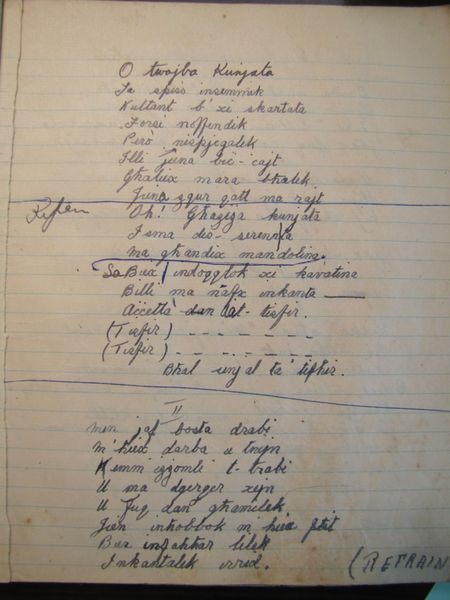 O twajba Kunjata
Ta spiss insemmek
Kultant b'xi skartata
Forsi noffendik
Però nispjegalek
Illi jiena bic-cajt
Ghaliex mara bhalek
Jena zgur qatt ma rajt
Refren
Oh! Ghaziza kunjata
Isma dis-serenata
ma ghandix mandolina
Sa Biex indoqqlok xi kavatina
Billi ma nafx inkanta
Accetta dan it-tisfir.
(Tisfir) - - - - - - - -
(Tisfir) - - - - - - - -
Bhal unjal ta'
II
min jaf kosta drabi
m'hux darba u tnejn
Kemm izzomli t-trabi
U ma dgerger xejn
U fuq dan ghamilek
Jien inhobbok m'hux ftit
Biex infahhar lilek
Inkantalek irrid.
(REFRAIN